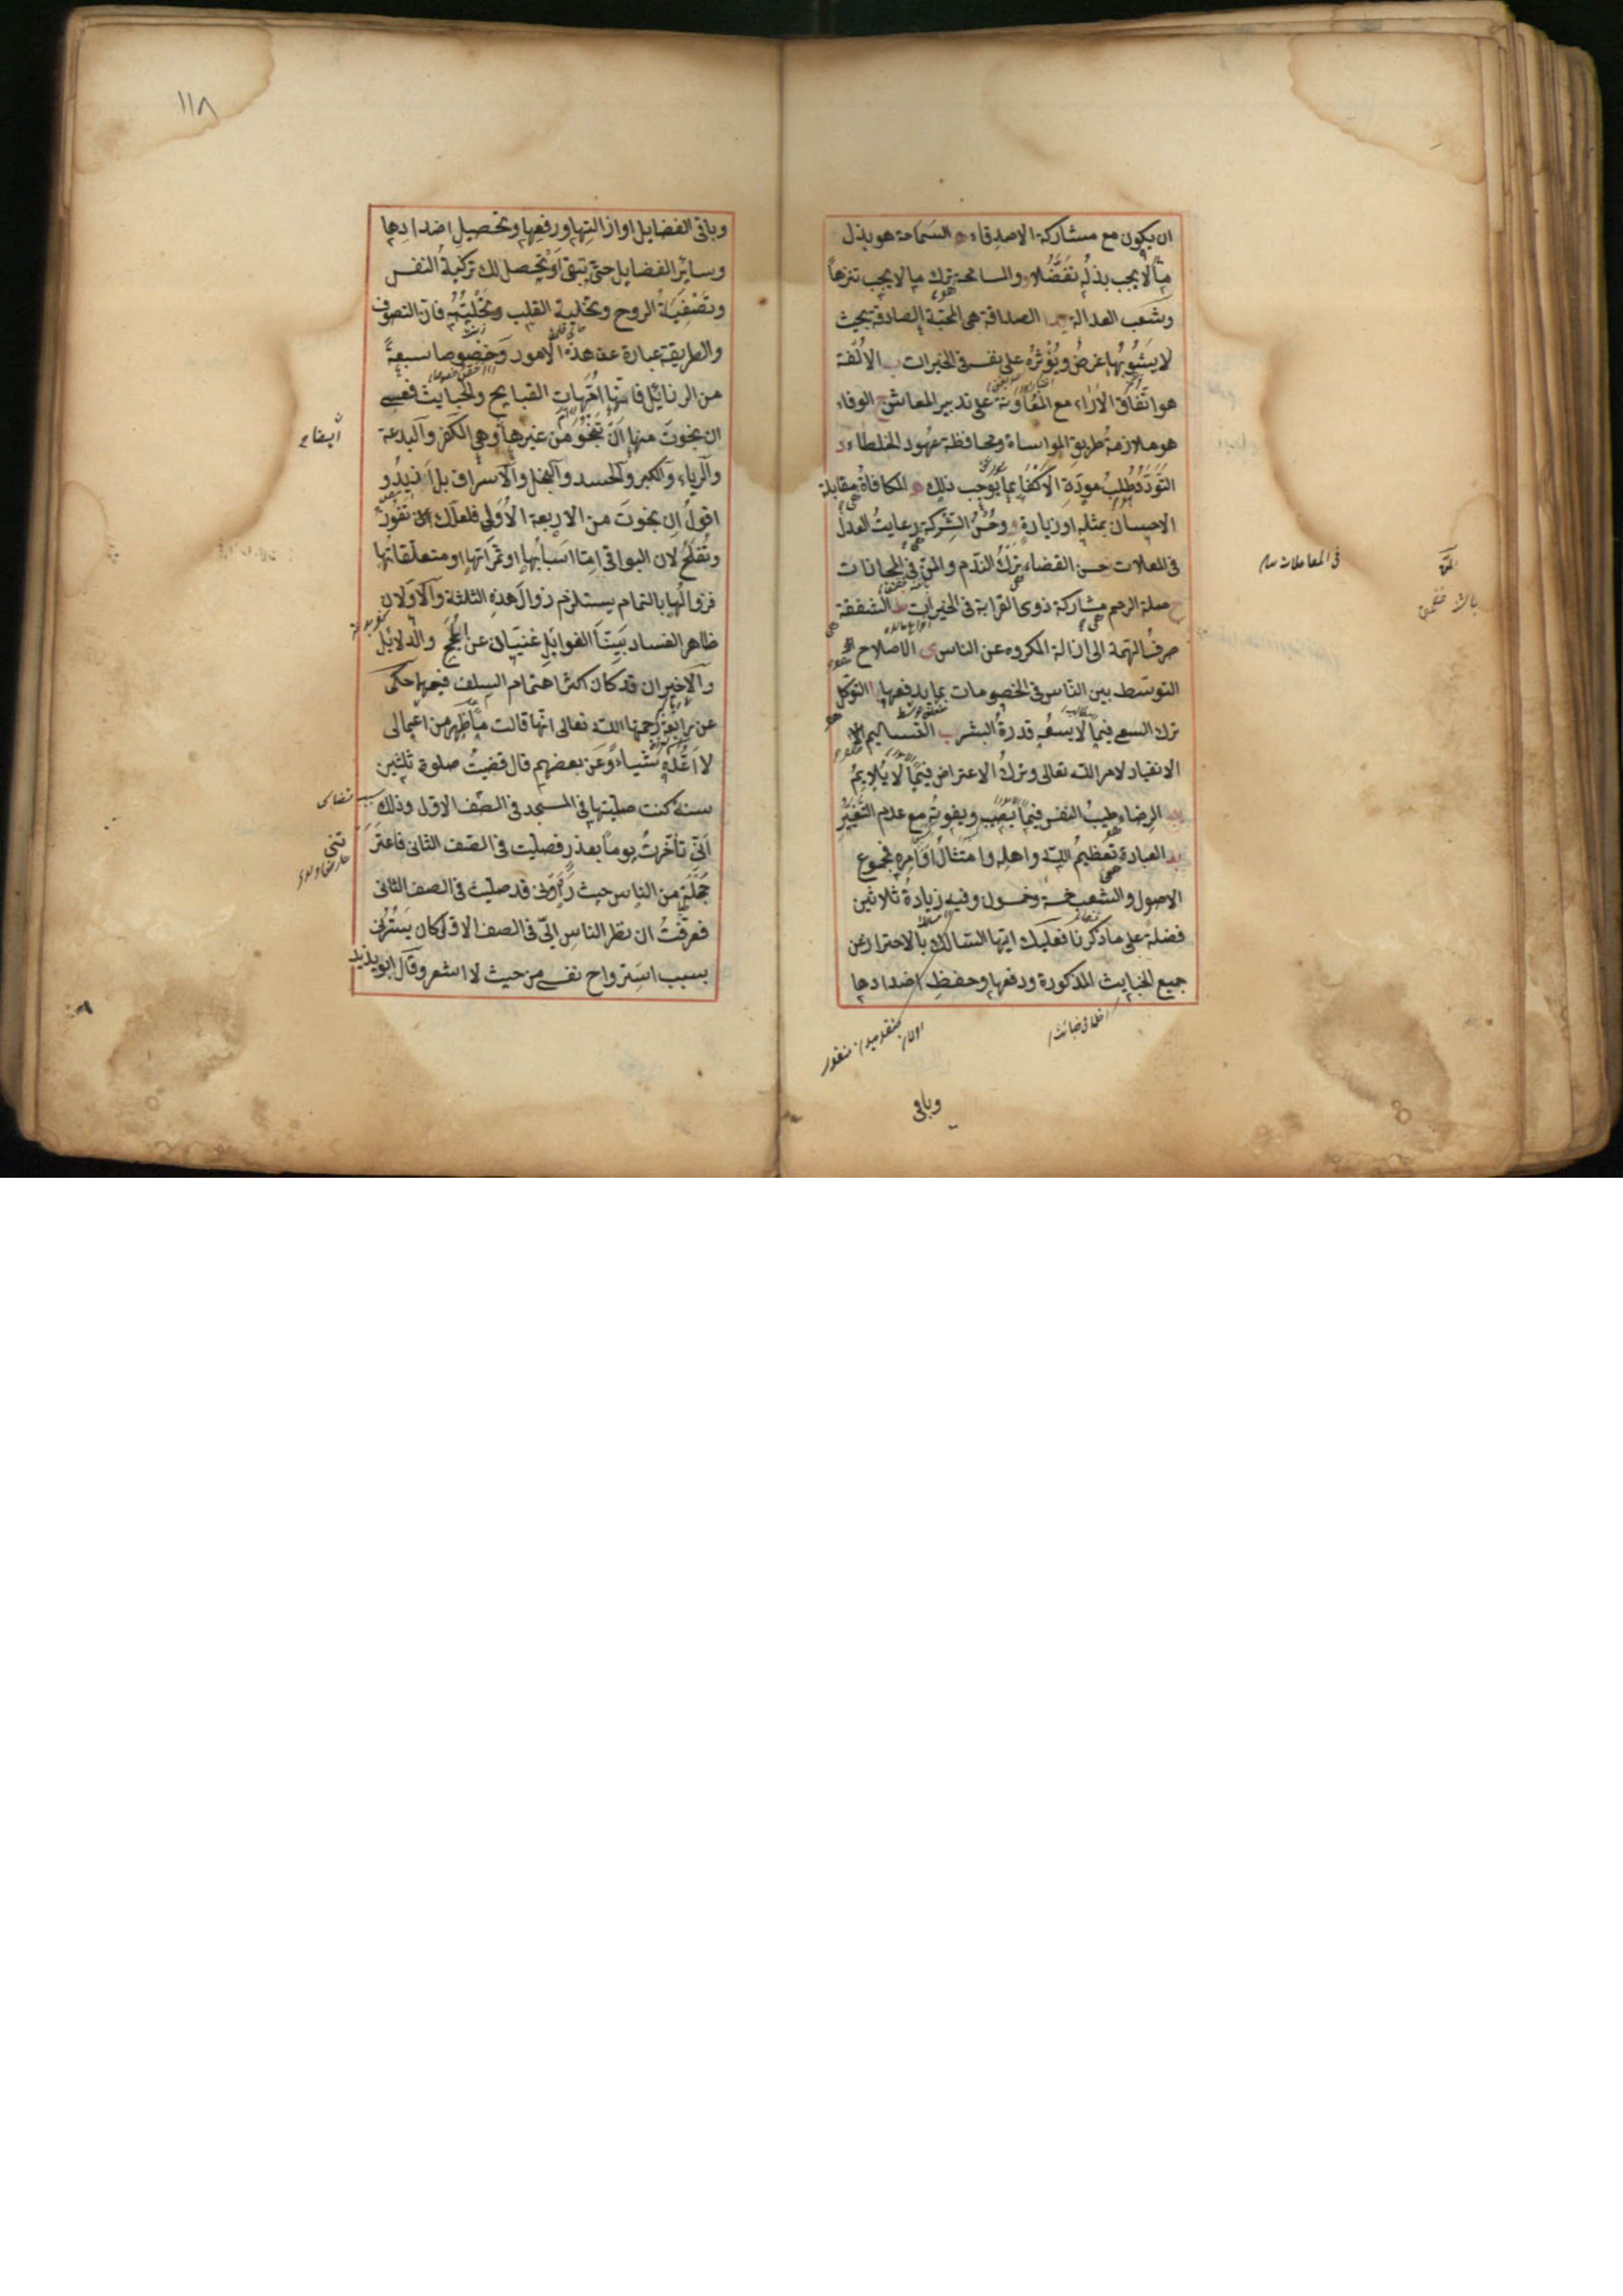 ان يكون مع مشاركة الاصدقاء ه السماحة هو بذل
ما لا يجب بذله تفضلا و المسامحة ترك ما لا يجب تنزها
وشعب العدالة يد ا الصداقة هى المحبة الصادقة بحيث
لا يشوبها غرض ويؤثره على نفسه فى الخيرات ب الالفة
هو اتفاق الاراء مع المعاونة على تدبير المعاش ج الوفاء
هو ملازمة طريق المواساة ومحافظة عهود الخلطاء د
التودد طلب مودة الاكفاء بما يوجب ذلك ه المكافاة مقابلة
الاحسان بمثله او زيادة و حسن الشركة رعايت العدل
فى المعلات حسن القضاء ترك الندم والمن فى المجازات
ح صلة الرحم مشاركة ذوى القرابة فى الخيرات ط الشفقة
صرف الهمة الى ازالة المكروه عن الناس ى الاصلاح
التوسط بين الناس فى الخصومات بما يدفعها يا التوكل
ترك السعى فيما لا يسعه قدرة البشر يب التسليم
الانقياد لامر الله تعالى وترك الاعتراض فيما لا يلايم
يج الرضاء طيب النفس فيما يصيب ويفوته مع عدم التغير
يد العبادة تعظيم الله واهله وامتثال اوامره فجموع
الاصول والشعب خمسة وخمسون وفيه زيادة ثلاثين
فضلة على ما ذكرنا فعليك ايها السالك بالاحتراز عن
جميع الخبايث المذكورة ودفعها وحفظ اضدادها
فى المعاملات
وباقى
١١٨
وباقى الفضايل او ازالتها ورفعها وتحصيل اضدادها
وساير الفضايل حتى تبقى او تحصل لك تزكية النفس
وتصفية الروح وتخلية القلب وتحليته فان التصوف
والطريقة عبارة عن هذه الامور وخصوصا سبعة
من الرذائل فانها امهات القبايح والخبايث فعسى
ان نجوت منها ان تنجو من غيرها وهى الكفر والبدعة
والرياء والكبر والحسد والبخل والاسراف بل ازيد و
اقول ان نجوت من الاربعة الاولى فلعلك ان تفوز
وتفلح لان البواقى اما اسبابها او ثمراتها او متعلقاتها
فزوالها بالتمام يستلزم زوال هذه الثلثة والاولان
ظاهر الفساد بينا الغوايل غنيان عن الحجج والدلايل
والاخيران قد كان اكثر اهتمام السلف فيهما حكى
عن رابعة رحمها الله تعالى انها قالت ما ظهر من اعمالى
لا اعده شيئا وعن بعضهم قال قضيت صلوة ثلثين
سنة كنت صليتها فى المسجد فى الصف الاول وذلك
انى تأخرت يوما بعذر فصليت فى الصف الثانى فاعتر
تنى
خجلة من الناس حيث رأونى قد صليت فى الصف الثانى
فعرفت ان نظر الناس الى فى الصف الاول كان يسترنى
بسبب استرواح نفسى من حيث لا اشعر وقال ابو يزيد